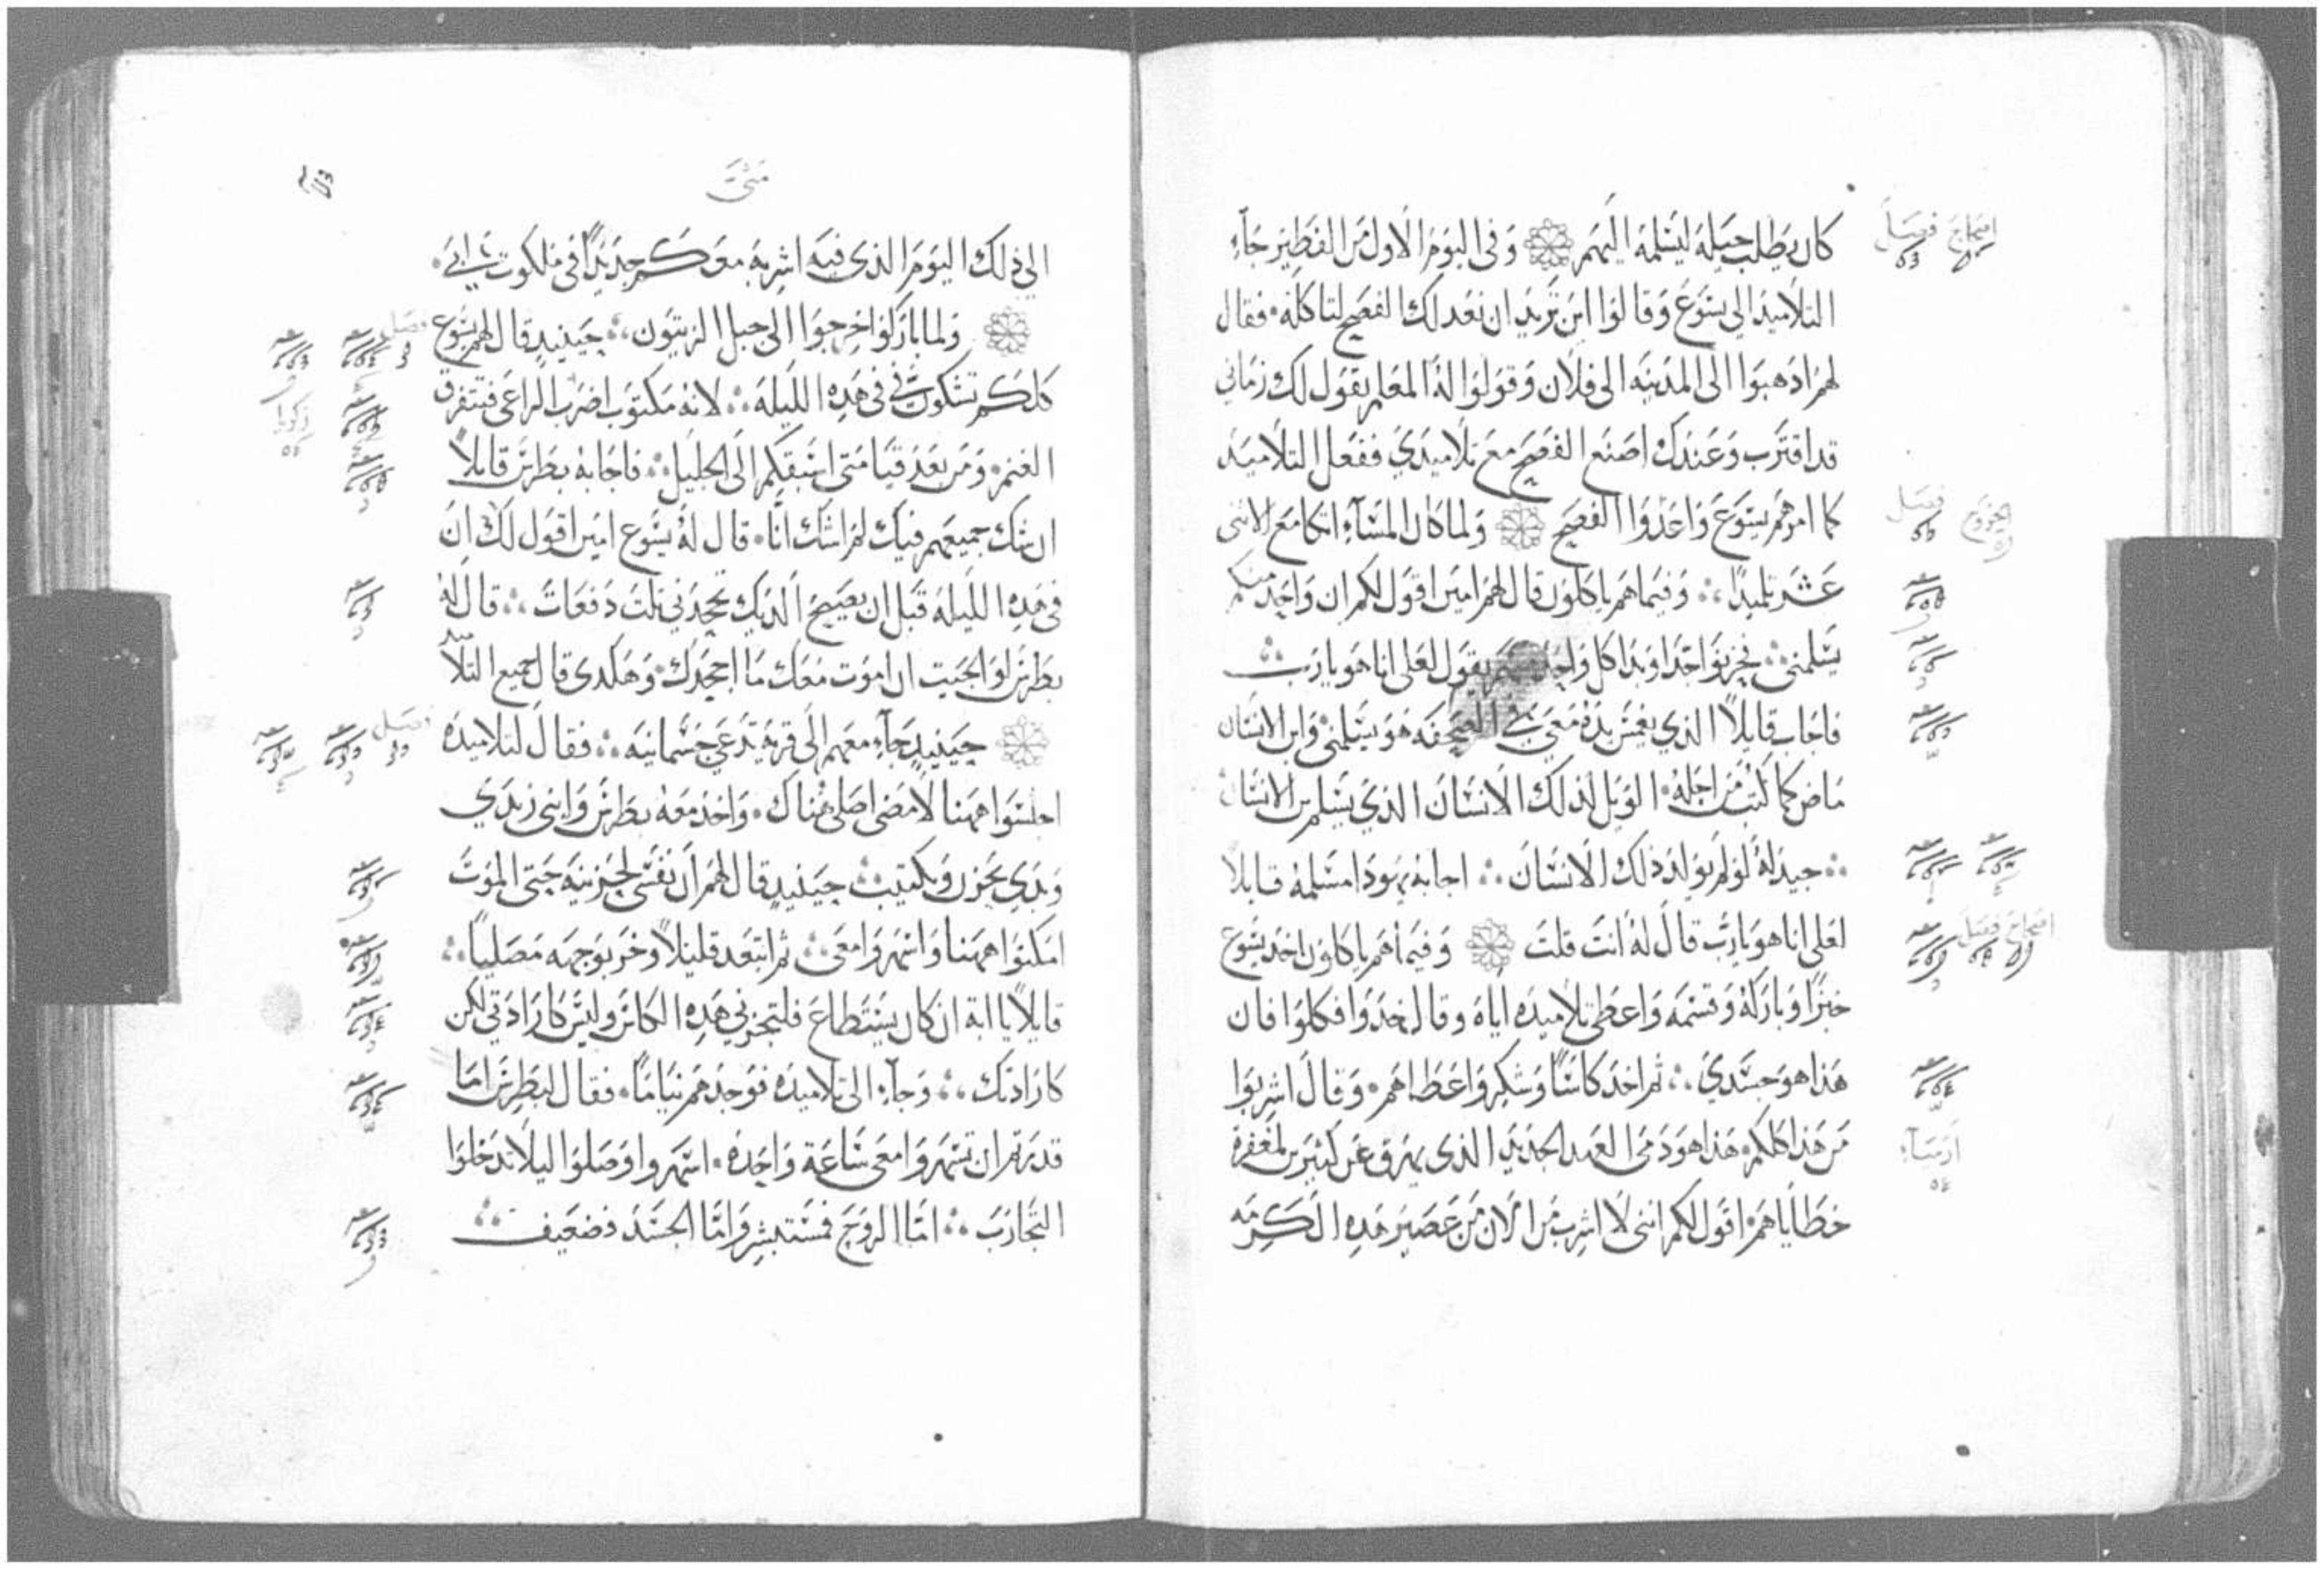 كان يطلب حيلة ليسلمه اليهم وفي اليوم الاول من الفطير جآء
التلاميذ الى يسوع وقالوا اين تريد ان نعد لك الفصح لتاكله. فقال
لهم ادهبوا الى المدينه الى فلان وقولوا له المعلم يقول لك زماني
قد اقترب وعندك اصنع الفصح مع تلاميدي ففعل التلاميد
كما امرهم يسوع واعدوا الفصح ولما كان المسآء اتكا مع الاثنى
عشر تلميدا ؞ وفيما هم ياكلون قال لهم امين اقول لكم ان واحد منكم
يسلمنى ؞ فحزنوا جدا وبدا كل واحد منهم يقول لعلى انا هو يارب ؞
فاجاب قايلاً الذي يغمس يده معي في الصحفه هو يسلمنى وابن الانسان
ماض كما كتب من اجله. الويل لذلك الانسان الذي يسلم ابن الانسان
؞ جيد له لو لم يولد ذلك الانسان ؞ اجابه يهودا مسلمه قايلا
لعلى انا هو يارب قال له انت قلت وفيما هم ياكلون اخد يسوع
خبزا وباركه وقسمه واعطى تلاميده اياه وقال خدوا فكلوا فان
هدا هو جسدي ؞ ثم اخد كاسا وشكر واعطاهم. وقال اشربوا
من هدا كلكم. هدا هو دمى العهد الجديد الذى يهرق عن كثيرين لمغفرة
خطاياهم. اقول لكم اننى لا اشرب من الان من عصير هده الكرمه
اصحاح فصل
فصل
اصحاح فصل
ارميآء
متى
الى ذلك اليوم الذى فيه اشربه معكم جديدًا فى ملكوت ابي.
ولما باركوا خرجوا الى جبل الزيتون ؞ حينيد قال لهم يسوع
كلكم تشكون في فى هده الليلة ؞ لانه مكتوب اضرب الراعى فتتفرق
الغنم. ومن بعد قيامتى اسبقكم الى الجليل ؞ فاجابه بطرس قايلاً
ان شك جميعهم فيك لم اشك انا. قال له يسوع امين اقول لك ان
فى هده الليله قبل ان يصيح الديك تجحدنى ثلث دفعات ؞ قال له
بطرس لو الجيت ان اموت معك ما اجحدك. وهكدى قال جميع التلا
حينيد جآء معهم الى قرية تدعى جسمانيه ؞ فقال لتلاميده
اجلسوا ههنا لامضى اصلى هناك. واخد معه بطرس وابنى زبدي
وبدي يحزن ويكتيب ؞ حينيد قال لهم ان نفسى لحزينه حتى الموت
امكثوا ههنا واسهروا معى ؞ ثم ابتعد قليلاً وخر بوجهه مصلياً ؞
قايلاً يا ابة ان كان يستطاع فلتجزني هده الكاس وليس كارادتي لكن
كارادتك ؞ وجآء الى تلاميده فوجدهم نياماً. فقال لبطرس اما
قدرتم ان تسهروا معى ساعة واحده. اسهروا وصلوا ليلا تدخلوا
التجارب ؞ اما الروح فمستبشر واما الجسد فضعيف ؞
فصل
زكريا
فصل